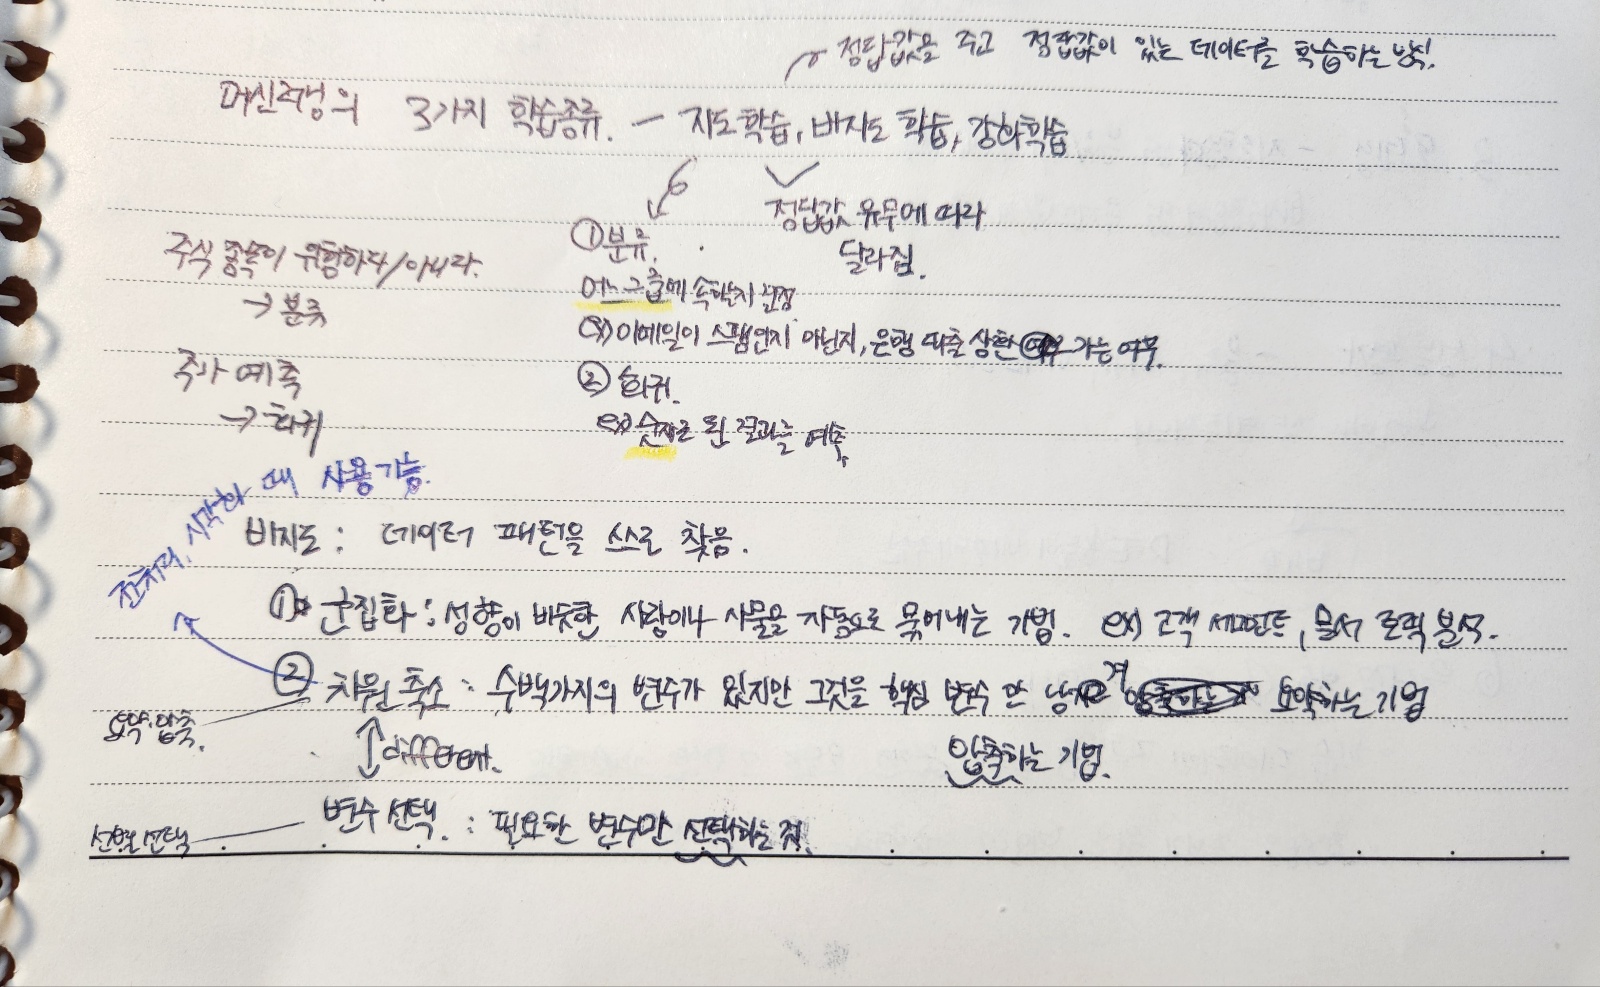 정답값을 주고 정답값이 있는 데이터를 학습하는 방식.
머신러닝의 3가지 학습종류. - 지도학습, 비지도 학습, 강화학습
정답값 유무에 따라
달라짐.
① 분류.
어느그룹에 속하는지 판정
ex) 이메일이 스팸인지 아닌지, 은행 대출 상환 가능 여부.
② 회귀.
ex) 숫자로 된 결과를 예측.
주식 종목이 위험하다/아니다.
→ 분류
주가 예측
→ 회귀
전처리, 시각화 때 사용가능.
비지도 : 데이터 패턴을 스스로 찾음.
① 군집화 : 성향이 비슷한 사람이나 사물을 자동으로 묶어내는 기법. ex) 고객 세그먼트, 문서 토픽 분석.
② 차원 축소 : 수백가지의 변수가 있지만 그것을 핵심 변수 만 남게 요약하는 기업
요약·압축.
different.
압축하는 기법.
변수 선택. : 필요한 변수만 선택하는 것.
선별 선택